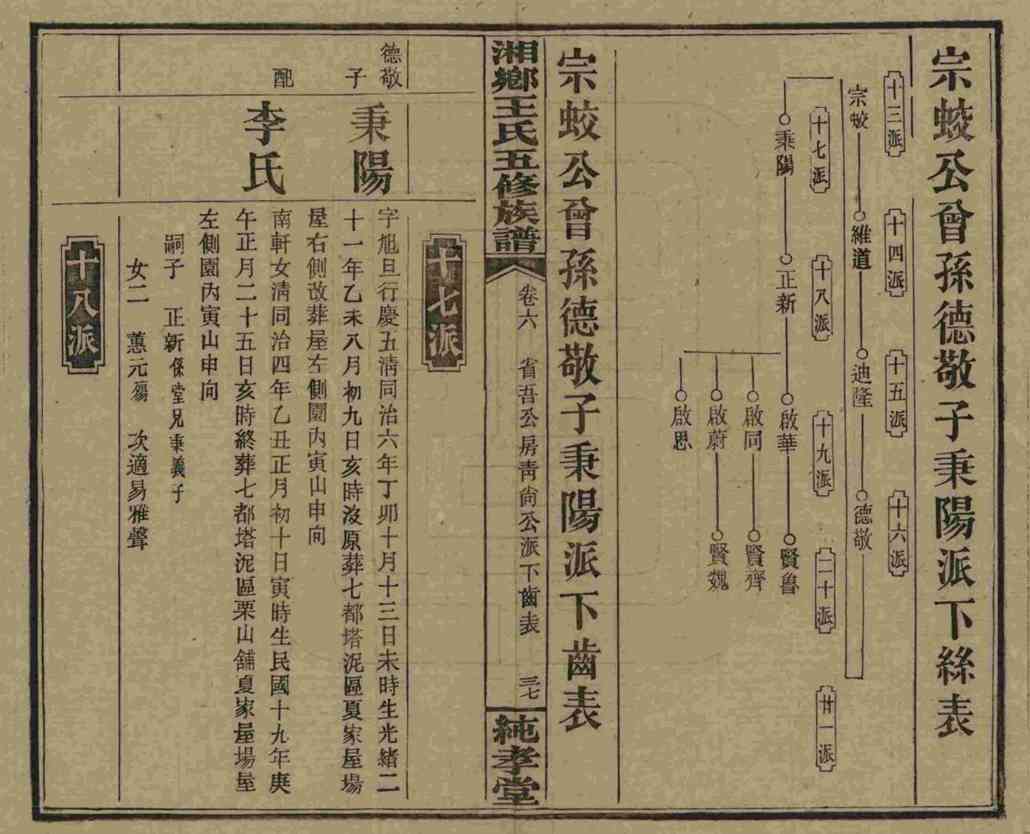 宗蛟公曾孫德敬子秉陽派下絲表
十三派
十四派
十五派
十六派
宗蛟
維道
迪隆
德敬
十七派
十八派
十九派
二十派
廿一派
秉陽
正新
啟華
賢魯
啟同
賢齊
啟蔚
賢魏
啟思
宗蛟公曾孫德敬子秉陽派下齒表
湘鄉王氏五修族譜
卷六
省吾公房靑尙公派下齒表
三七
純孝堂
十七派
德敬子
秉陽
字旭旦行慶五淸同治六年丁卯十月十三日未時生光緖二
十一年乙未八月初九日亥時沒原葬七都塔泥區夏家屋場
屋右側改葬屋左側園內寅山申向
配
李氏
南軒女淸同治四年乙丑正月初十日寅時生民國十九年庚
午正月二十五日亥時終葬七都塔泥區栗山舖夏家屋場屋
左側園內寅山申向
嗣子 正新係堂兄秉義子
女二 蕙元殤 次適易雅聲
十八派